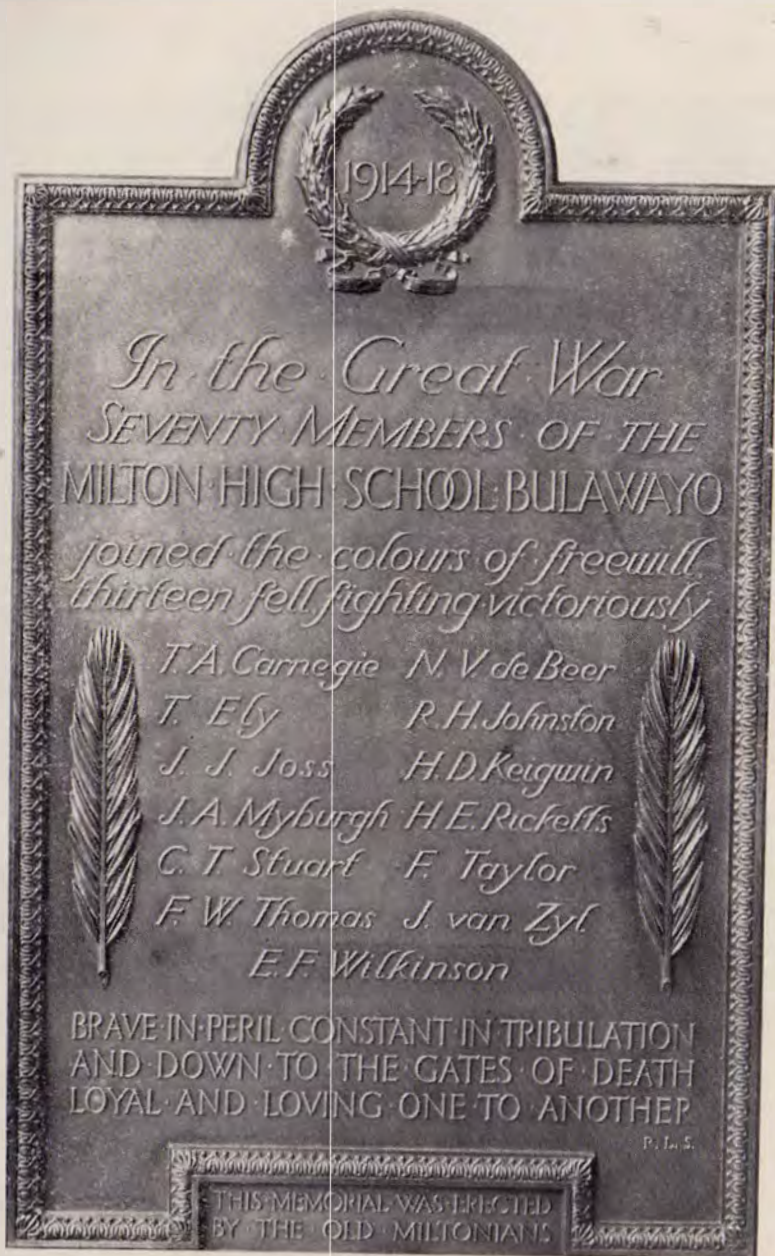 1914-18
In·the·Great·War
SEVENTY·MEMBERS·OF·THE
MILTON·HIGH·SCHOOL:BULAWAYO
joined·the·colours·of·freewill
thirteen fell fighting victoriously
T.A. Carnegie N.V. de Beer
T. Ely R.H. Johnston
J. J. Joss H.D. Keigwin
J.A. Myburgh H.E. Ricketts
C.T. Stuart F. Taylor
F. W. Thomas J. van Zyl
E.F. Wilkinson
BRAVE·IN·PERIL·CONSTANT·IN TRIBULATION
AND·DOWN·TO·THE·GATES·OF·DEATH
LOYAL·AND·LOVING·ONE·TO·ANOTHER
R.L.S.
THIS·MEMORIAL·WAS·ERECTED
BY·THE·OLD·MILTONIANS